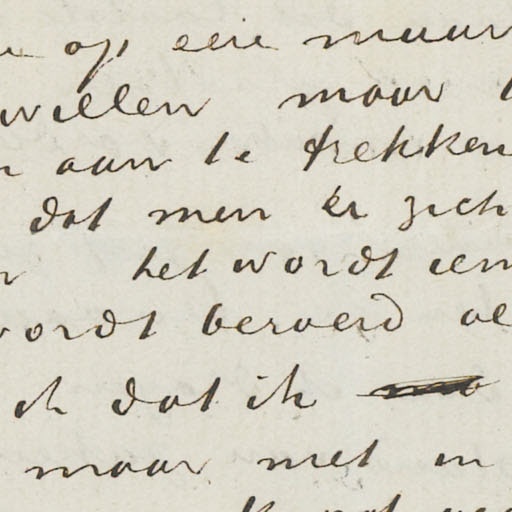 op een muur
willen maar
aan te trekken
dat men er zich
het wordt een
wordt beroerd
ik dat ik
maar met in